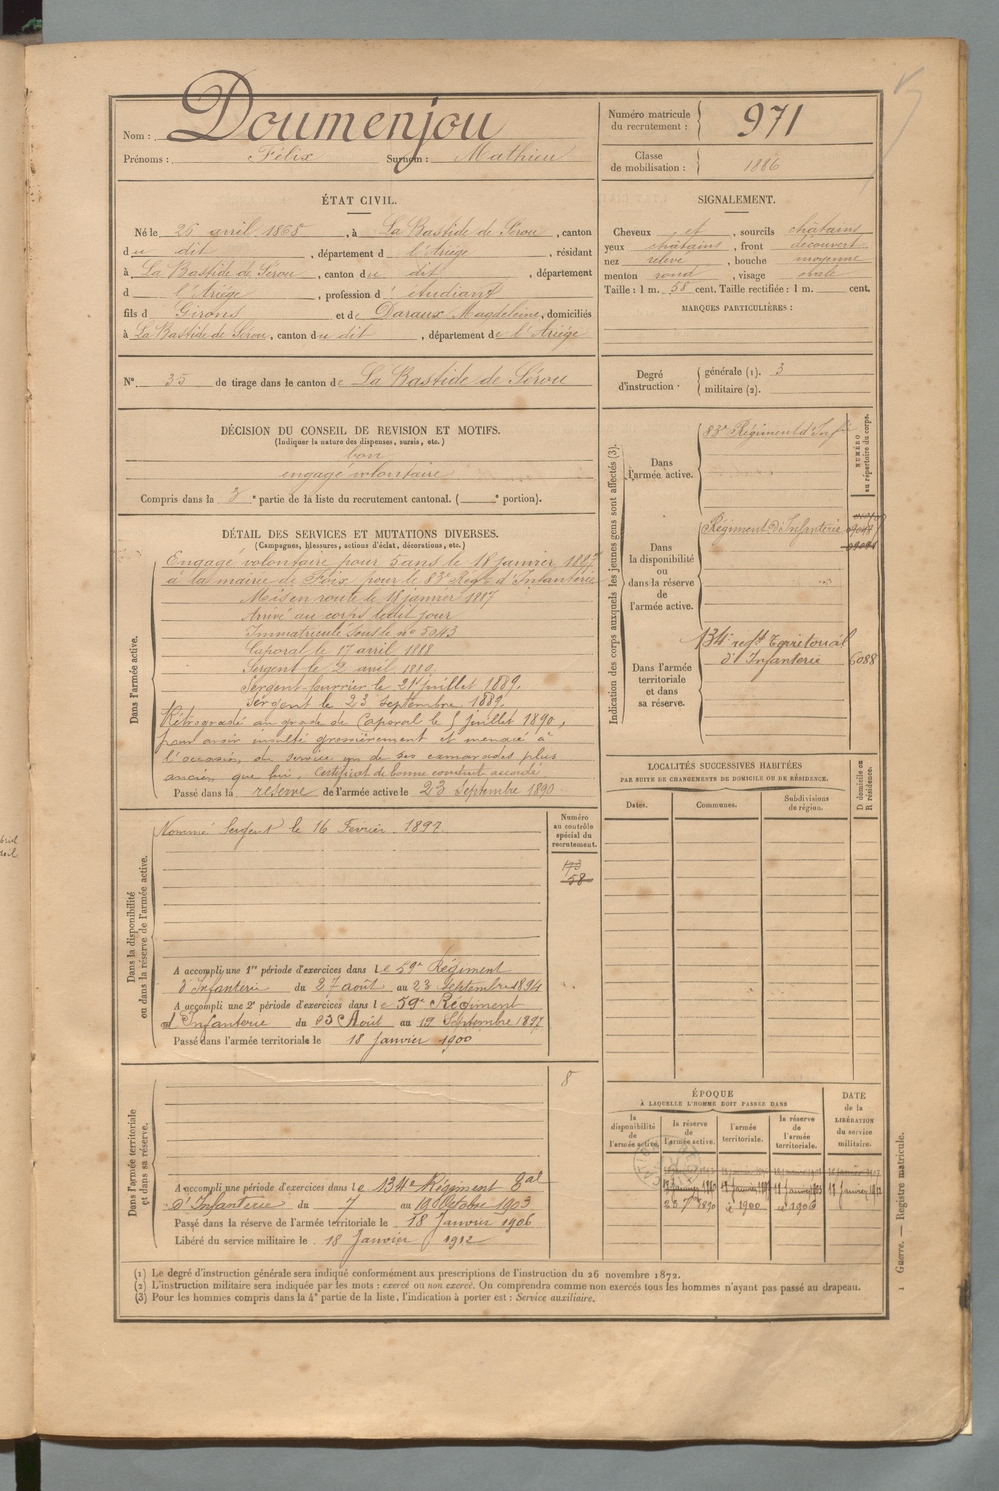 Nom : Doumenjou
Prénoms : Félix Surnom : Mathieu
Numéro matricule du recrutement : 971
Classe de mobilisation : 1886
ÉTAT CIVIL.
Né le 25 avril 1868, à La Bastide de Sérou, canton
du dit, département d l'Ariège, résidant
à La Bastide de Sérou, canton du dit, département
d l'Ariège, profession d' étudiant
fils d Girons et de Daraux Magdeleine, domiciliés
à La Bastide de Sérou, canton du dit, département de l'Ariége
N° 35 de tirage dans le canton de La Bastide de Sérou
SIGNALEMENT.
Cheveux et, sourcils châtains
yeux châtains, front découvert
nez relevé, bouche moyenne
menton rond, visage ovale
Taille : 1 m. 58 cent. Taille rectifiée : 1 m. cent.
MARQUES PARTICULIÈRES :
Degré d'instruction. générale (1). 3
militaire (2).
DÉCISION DU CONSEIL DE REVISION ET MOTIFS.
(Indiquer la nature des dispenses, sursis, etc.)
bon
engagé volontaire
Compris dans la 3e partie de la liste du recrutement cantonal. ( e portion).
DÉTAIL DES SERVICES ET MUTATIONS DIVERSES.
(Campagnes, blessures, actions d'éclat, décorations, etc.)
Dans l'armée active.
Engagé volontaire pour 5 ans le 18 janvier 1887
à la mairie de Foix pour le 83e Regt d'Infanterie
Mis en route le 18 janvier 1887
Arrivé au corps ledit jour
Immatriculé sous le n° 3043
Caporal le 17 avril 1888
Sergent le 2 avril
Sergent-fourrier le 21 juillet 1889.
Sergent le 23 septembre 1889.
Rétrogradé au grade de Caporal le 5 juillet 1890,
pour avoir insulté grossièrement et menacé à
l'occasion du service un de ses camarades plus
ancien que lui. Certificat de bonne conduite accordé
Passé dans la réserve de l'armée active le 23 Septembre 1890
Dans la disponibilité ou dans la réserve de l'armée active.
Nommé Sergent le 16 Février
Numéro au contrôle spécial du recrutement.
58
A accompli une 1re période d'exercices dans le 59e Régiment
d'Infanterie du 27 août au 23 septembre 1894
A accompli une 2e période d'exercices dans le 59e Régiment
d'Infanterie du 23 Août au 19 Septembre 1897
Passé dans l'armée territoriale le 18 Janvier 1900
Dans l'armée territoriale et dans sa réserve.
8
A accompli une période d'exercices dans le 134e Régiment Eal
d'Infanterie du 7 au 19 Octobre 1903
Passé dans la réserve de l'armée territoriale le 18 Janvier 1906
Libéré du service militaire le 18 Janvier 1912
Indication des corps auxquels les jeunes gens sont affectés (3).
NUMÉRO au répertoire du corps.
Dans l'armée active.
83e Régiment d'Infie
Dans la disponibilité ou dans la réserve de l'armée active.
Régiment d'Infanterie
Dans l'armée territoriale et dans sa réserve.
134e regt Territorial
d'Infanterie 6088
LOCALITÉS SUCCESSIVES HABITÉES
PAR SUITE DE CHANGEMENTS DE DOMICILE OU DE RÉSIDENCE.
D domicile ou R résidence.
Dates. Communes. Subdivisions de région.
ÉPOQUE
À LAQUELLE L'HOMME DOIT PASSER DANS
la disponibilité de l'armée active.
la réserve de l'armée active.
l'armée territoriale.
la réserve de l'armée territoriale.
DATE de la LIBÉRATION du service militaire.
23 7bre 1890 d° 1900 d° 1906
(1) Le degré d'instruction générale sera indiqué conformément aux prescriptions de l'instruction du 26 novembre 1872.
(2) L'instruction militaire sera indiquée par les mots : exercé ou non exercé. On comprendra comme non exercés tous les hommes n'ayant pas passé au drapeau.
(3) Pour les hommes compris dans la 4e partie de la liste, l'indication à porter est : Service auxiliaire.
Guerre. — Registre matricule.